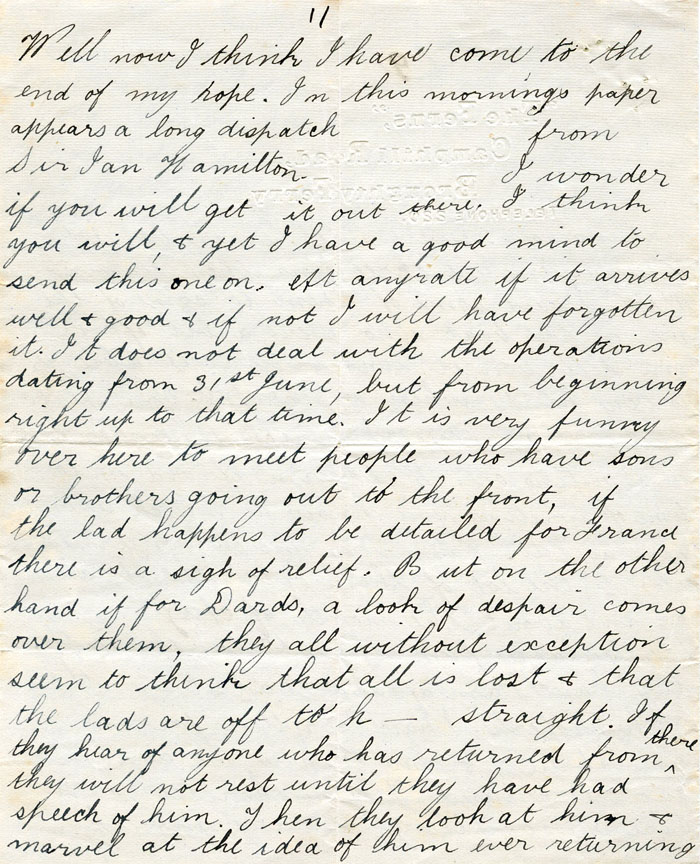 11
Well now I think I have come to the
end of my rope. In this mornings paper
appears a long dispatch from
Sir Ian Hamilton. I wonder
if you will get it out there. I think
you will, & yet I have a good mind to
send this one on. At anyrate if it arrives
well & good & if not I will have forgotten
it. It does not deal with the operations
dating from 31st June, but from beginning
right up to that time. It is very funny
over here to meet people who have sons
or brothers going out to the front, if
the lad happens to be detailed for France
there is a sigh of relief. But on the other
hand if for Dards, a look of despair comes
over them, they all without exception
seem to think that all is lost & that
the lads are off to h — straight. If
they hear of anyone who has returned from ^ there
they will not rest until they have had
speech of him. Then they look at him &
marvel at the idea of him ever returning